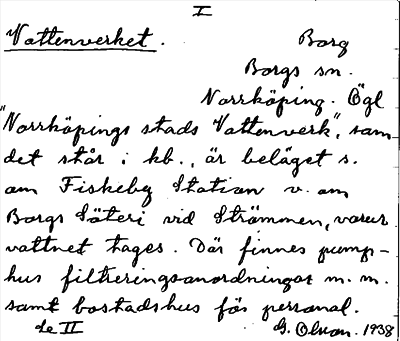 I
Vattenverket. Borg
Borgs sn.
Norrköping. Ögl
"Norrköpings stads Vattenverk", som
det står i kb., är beläget s.
om Fiskeby Station v. om
Borgs Säteri vid Strömmen, varur
vattnet tages. Där finnes pump-
hus filtreringsanordningar m. m.
samt bostadshus för personal.
se II G. Olson. 1938